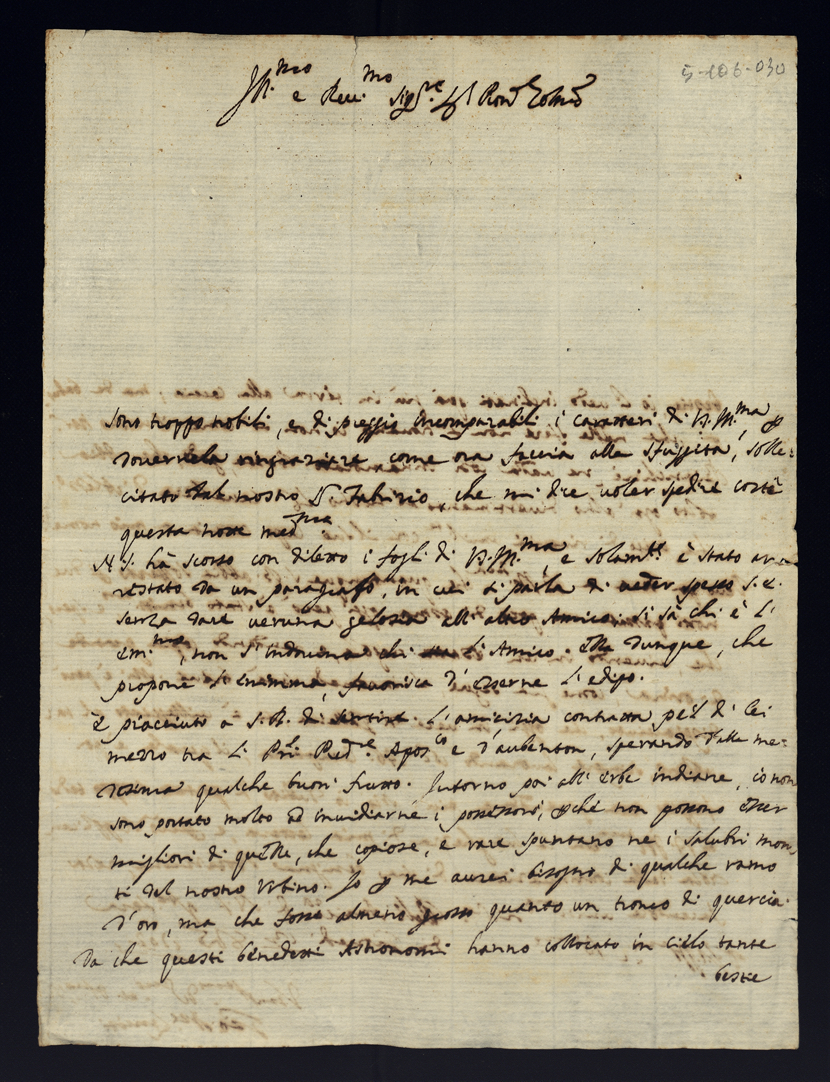 5-106-030
Ill.mo e Rev.mo Sig.re Sig.
Sono troppo nobili, e di preggio incomparabili i caratteri di V.S.Ill.ma, p
dovernela ringraziare come ora faccio alla sfuggita, solle=
citato dal nostro S.r Fabrizio, che mi dice voler spedire costì
questa notte med.ma
N.S. hà scorso con diletto i fogli di V.S.Ill.ma, e solam.te è stato ar=
restato da un paragrafo, in cui si parla di veder spesso S.E.
senza dare veruna gelosia all'altro Amico: si sà chi è l'
Em.mo, non s'indovina chi sia l'Amico. Ella dunque, che
propone l'enimma, favorisca d'esserne l'edipo.
È piacciuto a S.B. di sentire l'amicizia contratta p el di lei
mezzo tra li P.ri Pred.re Apos.co e d'aubenton, sperando dalla me=
desima qualche buon frutto. Intorno poi all'erbe indiane, io non
sono portato molto ad invidiarne i possessori, pche non possono esser
migliori di quelle, che copiose, e rare spuntano ne i salubri mon=
ti del nostro Urbino. Io p me aurei bisogno di qualche ramo
d'oro, ma che fosse almeno grosso quanto un tronco di quercia.
Da che questi benedetti Astronomi hanno collocato in cielo tante
bestie